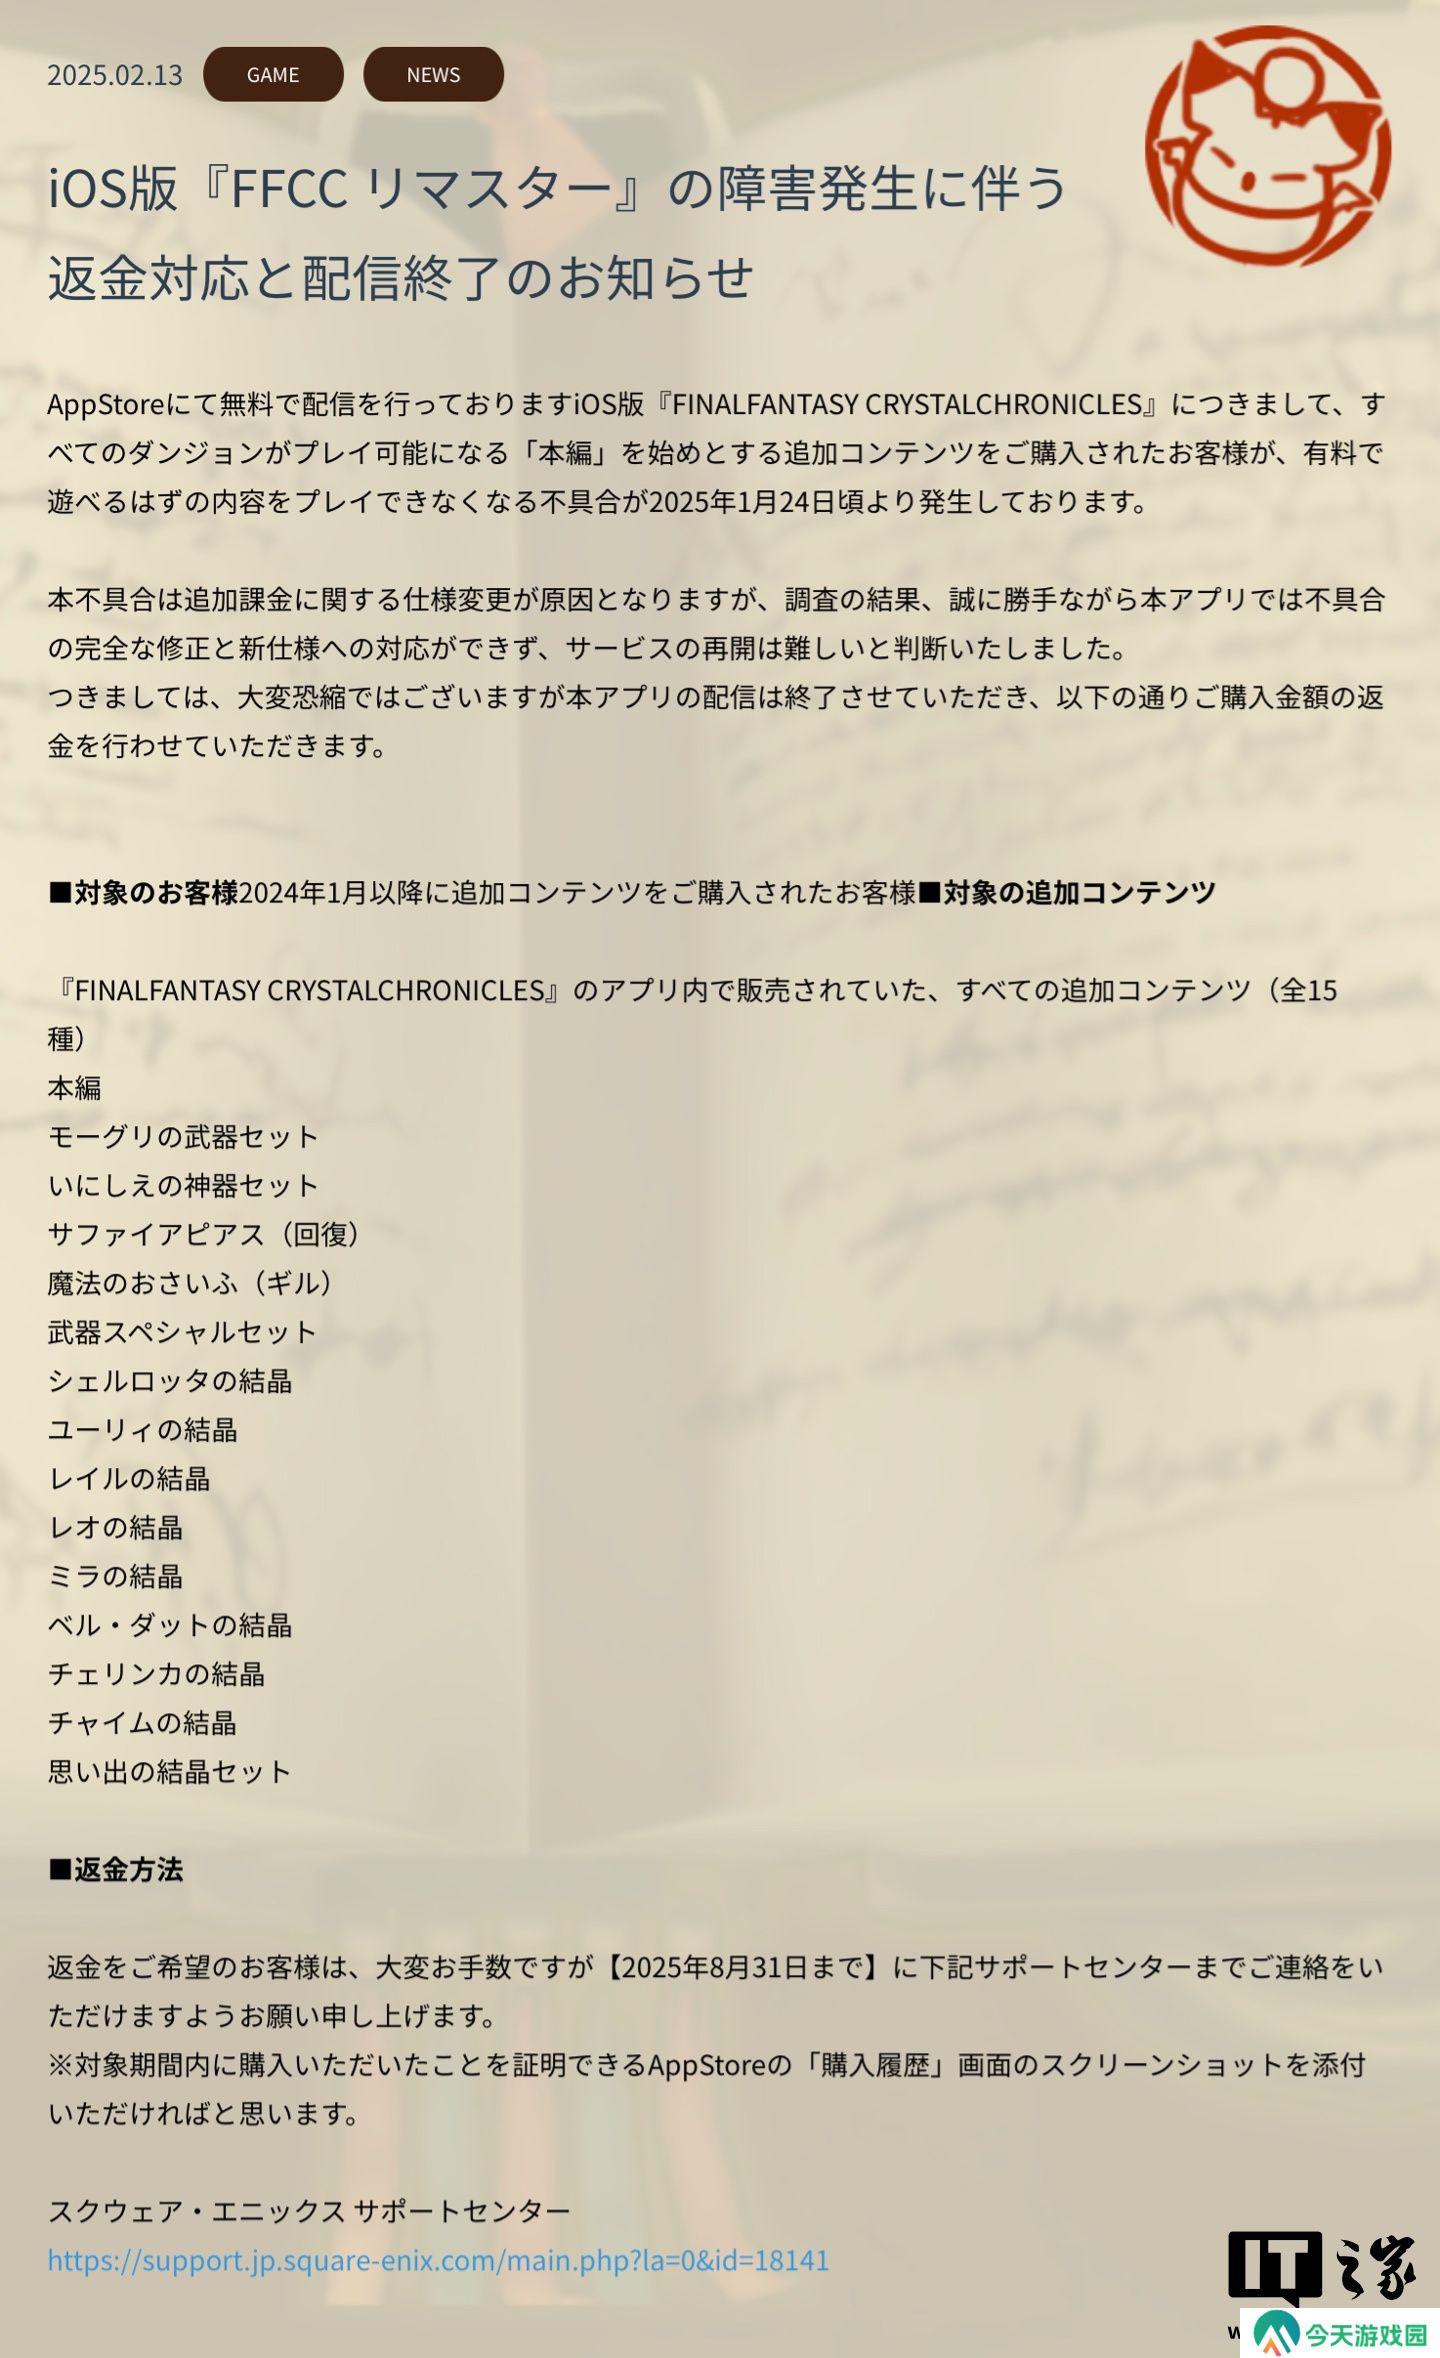 2025.02.13 GAME NEWS
iOS版『FFCC リマスター』の障害発生に伴う
返金対応と配信終了のお知らせ
AppStoreにて無料で配信を行っておりますiOS版『FINALFANTASY CRYSTALCHRONICLES』につきまして、す
べてのダンジョンがプレイ可能になる「本編」を始めとする追加コンテンツをご購入されたお客様が、有料で
遊べるはずの内容をプレイできなくなる不具合が2025年1月24日頃より発生しております。
本不具合は追加課金に関する仕様変更が原因となりますが、調査の結果、誠に勝手ながら本アプリでは不具合
の完全な修正と新仕様への対応ができず、サービスの再開は難しいと判断いたしました。
つきましては、大変恐縮ではございますが本アプリの配信は終了させていただき、以下の通りご購入金額の返
金を行わせていただきます。
■対象のお客様2024年1月以降に追加コンテンツをご購入されたお客様■対象の追加コンテンツ
『FINALFANTASY CRYSTALCHRONICLES』のアプリ内で販売されていた、すべての追加コンテンツ（全15
種）
本編
モーグリの武器セット
いにしえの神器セット
サファイアピアス（回復）
魔法のおさいふ（ギル）
武器スペシャルセット
シェルロッタの結晶
ユーリィの結晶
レイルの結晶
レオの結晶
ミラの結晶
ベル・ダットの結晶
チェリンカの結晶
チャイムの結晶
思い出の結晶セット
■返金方法
返金をご希望のお客様は、大変お手数ですが【2025年8月31日まで】に下記サポートセンターまでご連絡をい
ただけますようお願い申し上げます。
※対象期間内に購入いただいたことを証明できるAppStoreの「購入履歴」画面のスクリーンショットを添付
いただければと思います。
スクウェア・エニックス サポートセンター
https://support.jp.square-enix.com/main.php?la=0&id=18141
IT之家
今天游戏园